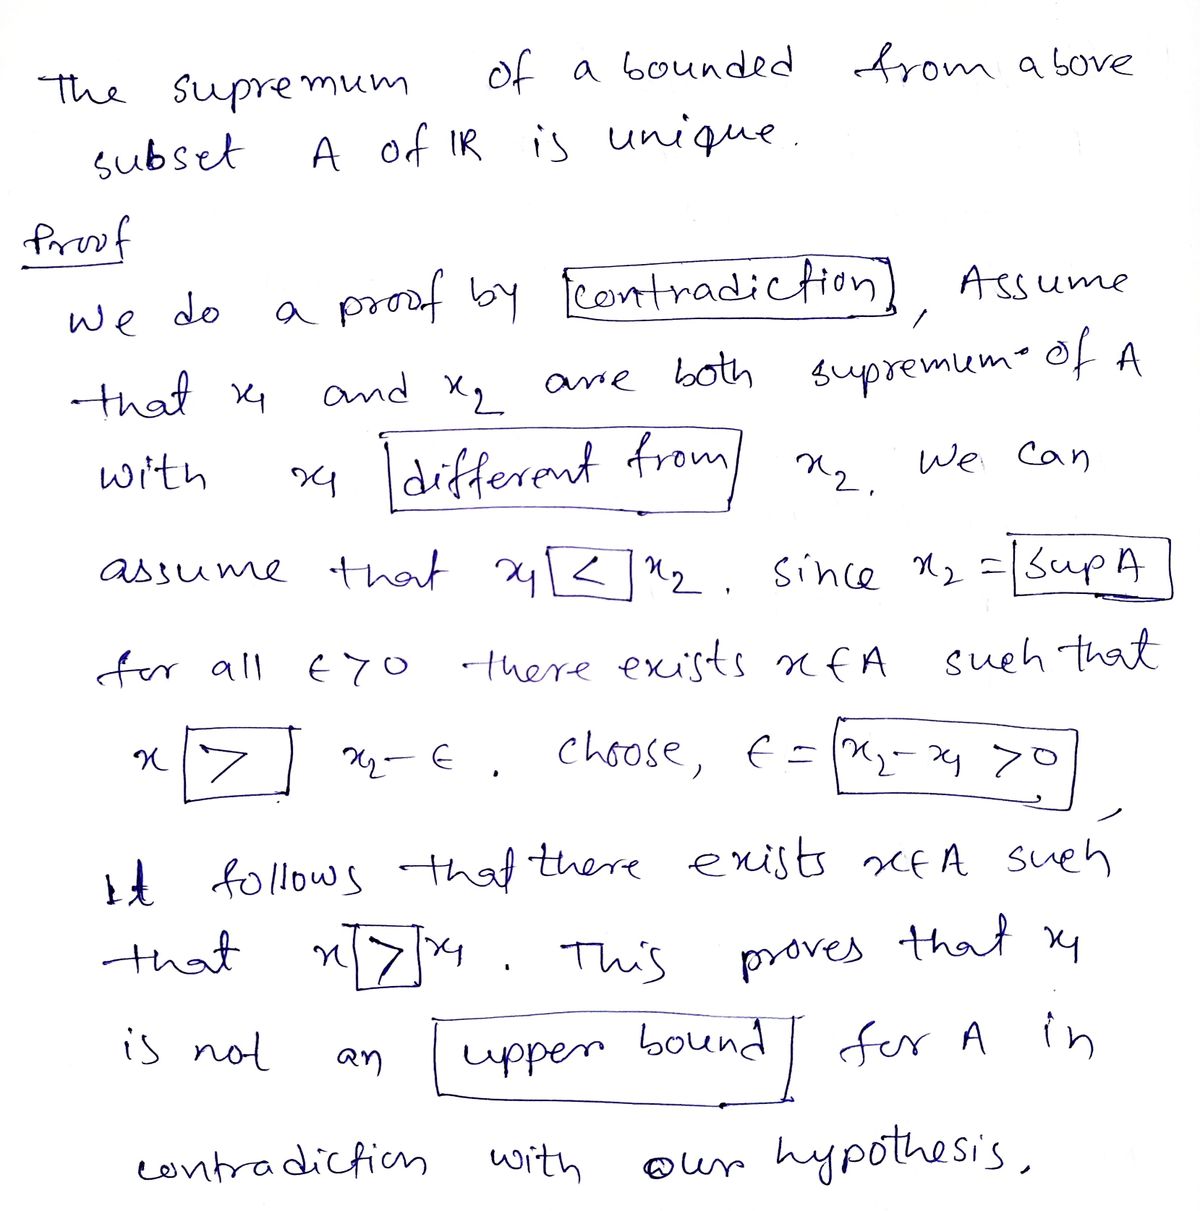 The supremum of a bounded from above
subset A of ℝ is unique.
Proof
We do a proof by contradiction, Assume
that x₁ and x₂ are both supremum of A
with x₁ different from x₂. We can
assume that x₁ < x₂. since x₂ = Sup A
for all ϵ>0 there exists x∈A such that
x > x₂-ϵ. Choose, ϵ = x₂-x₁ >0
It follows that there exists x∈A such
that x > x₁. This proves that x₁
is not an upper bound for A in
contradiction with our hypothesis.